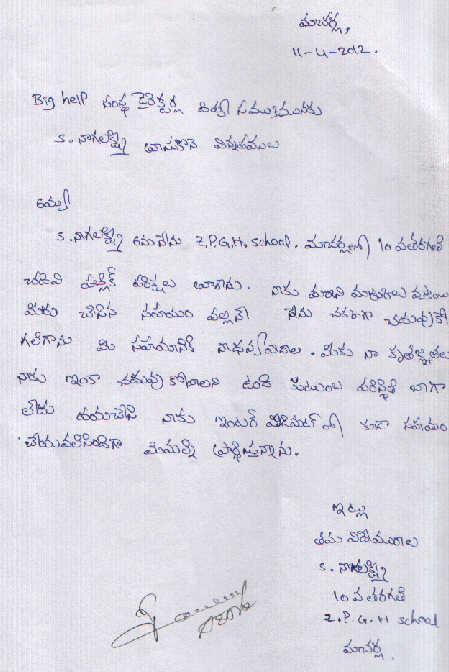 మాచర్ల,
11-4-2012.
Big help సంస్థ డైరెక్టర్ల దివ్య సముఖమునకు
S. నాగలక్ష్మి వ్రాసుకొనె విన్నపములు
అయ్యా
S. నాగలక్ష్మి అను నేను Z.P.G.H. School. మాచర్లలో 10 వ తరగతి
చదివి పబ్లిక్ పరీక్షలు వ్రాశాను. నాకు మంచి మార్కులు వస్తాయి
మీరు చేసిన సహాయం వల్లనే నేను చక్కగా చదువుకో
గలిగాను మీ సహాయానికి నా ధన్యవాదాలు. మీకు నా కృతజ్ఞతలు
నాకు ఇంకా చదువు కోవాలని ఉంది కుటుంబ పరిస్థితి బాగా
లేదు దయచేసి నాకు ఇంటర్ మీడియట్ లో కూడా సహాయం
చేయవలసిందిగా మిమ్మల్ని ప్రార్థిస్తున్నాను.
ఇట్లు
తమ విధేయురాలు
S. నాగలక్ష్మి
10 వ తరగతి
Z.P.G.H School
మాచర్ల.